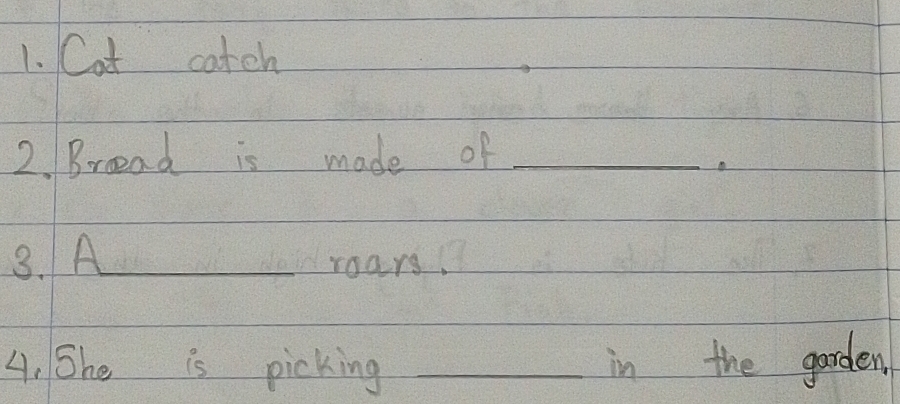 1. Cat catch .
2. Bread is made of ________ .
3. A ________ roars.
4. She is picking ________ in the garden.